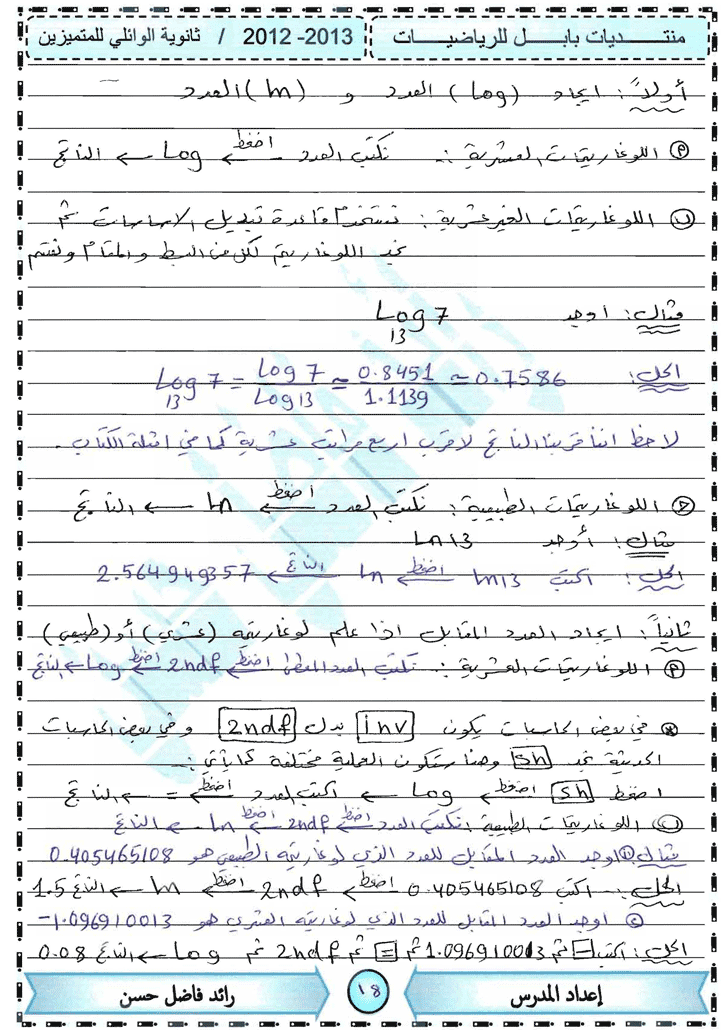 منتـــديات بابـــــل للرياضيـــــات
2012 -2013 / ثانوية الوائلي للمتميزين
أولاً: ايجاد (Log) العدد و (ln) العدد
P اللوغاريتمات العشرية: نكتب العدد ← اضغط Log ← الناتج
ب اللوغاريتمات الغير عشرية: نستخدم قاعدة تبديل الاساسات ثم
نجد اللوغاريتم لكل من البسط والمقام ونقسم
مثال: اوجد Log₁₃ 7
الحل: Log₁₃ 7 = Log 7 / Log 13 ≃ 0.8451 / 1.1139 ≃ 0.7586
لاحظ اننا قربنا الناتج لاقرب اربع مراتب عشرية كما في امثلة الكتاب .
ح اللوغاريتمات الطبيعية: نكتب العدد ← اضغط ln ← الناتج
مثال: أوجد Ln 13
الحل: اكتب ln13 ← اضغط ln ← الناتج 2.564949357
ثانياً: ايجاد العدد المقابل اذا علم لوغاريتمه (عشري) أو (طبيعي)
P اللوغاريتمات العشرية: نكتب العدد المعطى ← اضغط 2ndf ← اضغط Log ← الناتج
* في بعض الحاسبات يكون inv بدل 2ndf وفي بعض الحاسبات
الحديثة نجد Sh وهنا ستكون العملية مختلفة كما يأتي :-
اضغط Sh ← اضغط Log ← اكتب العدد ← اضغط = ← الناتج
ب اللوغاريتمات الطبيعية: نكتب العدد ← اضغط 2ndf ← اضغط ln ← الناتج
مثال ① اوجد العدد المقابل للعدد الذي لوغاريتمه الطبيعي هو 0.405465108
الحل: اكتب 0.405465108 ← اضغط 2ndf ← اضغط ln ← الناتج 1.5
② اوجد العدد المقابل للعدد الذي لوغاريتمه العشري هو 1.096910013-
الحل: اكتب - ثم 1.096910013 ثم = ثم 2ndf ثم Log ← الناتج 0.08
إعداد المدرس
١٨
رائد فاضل حسن